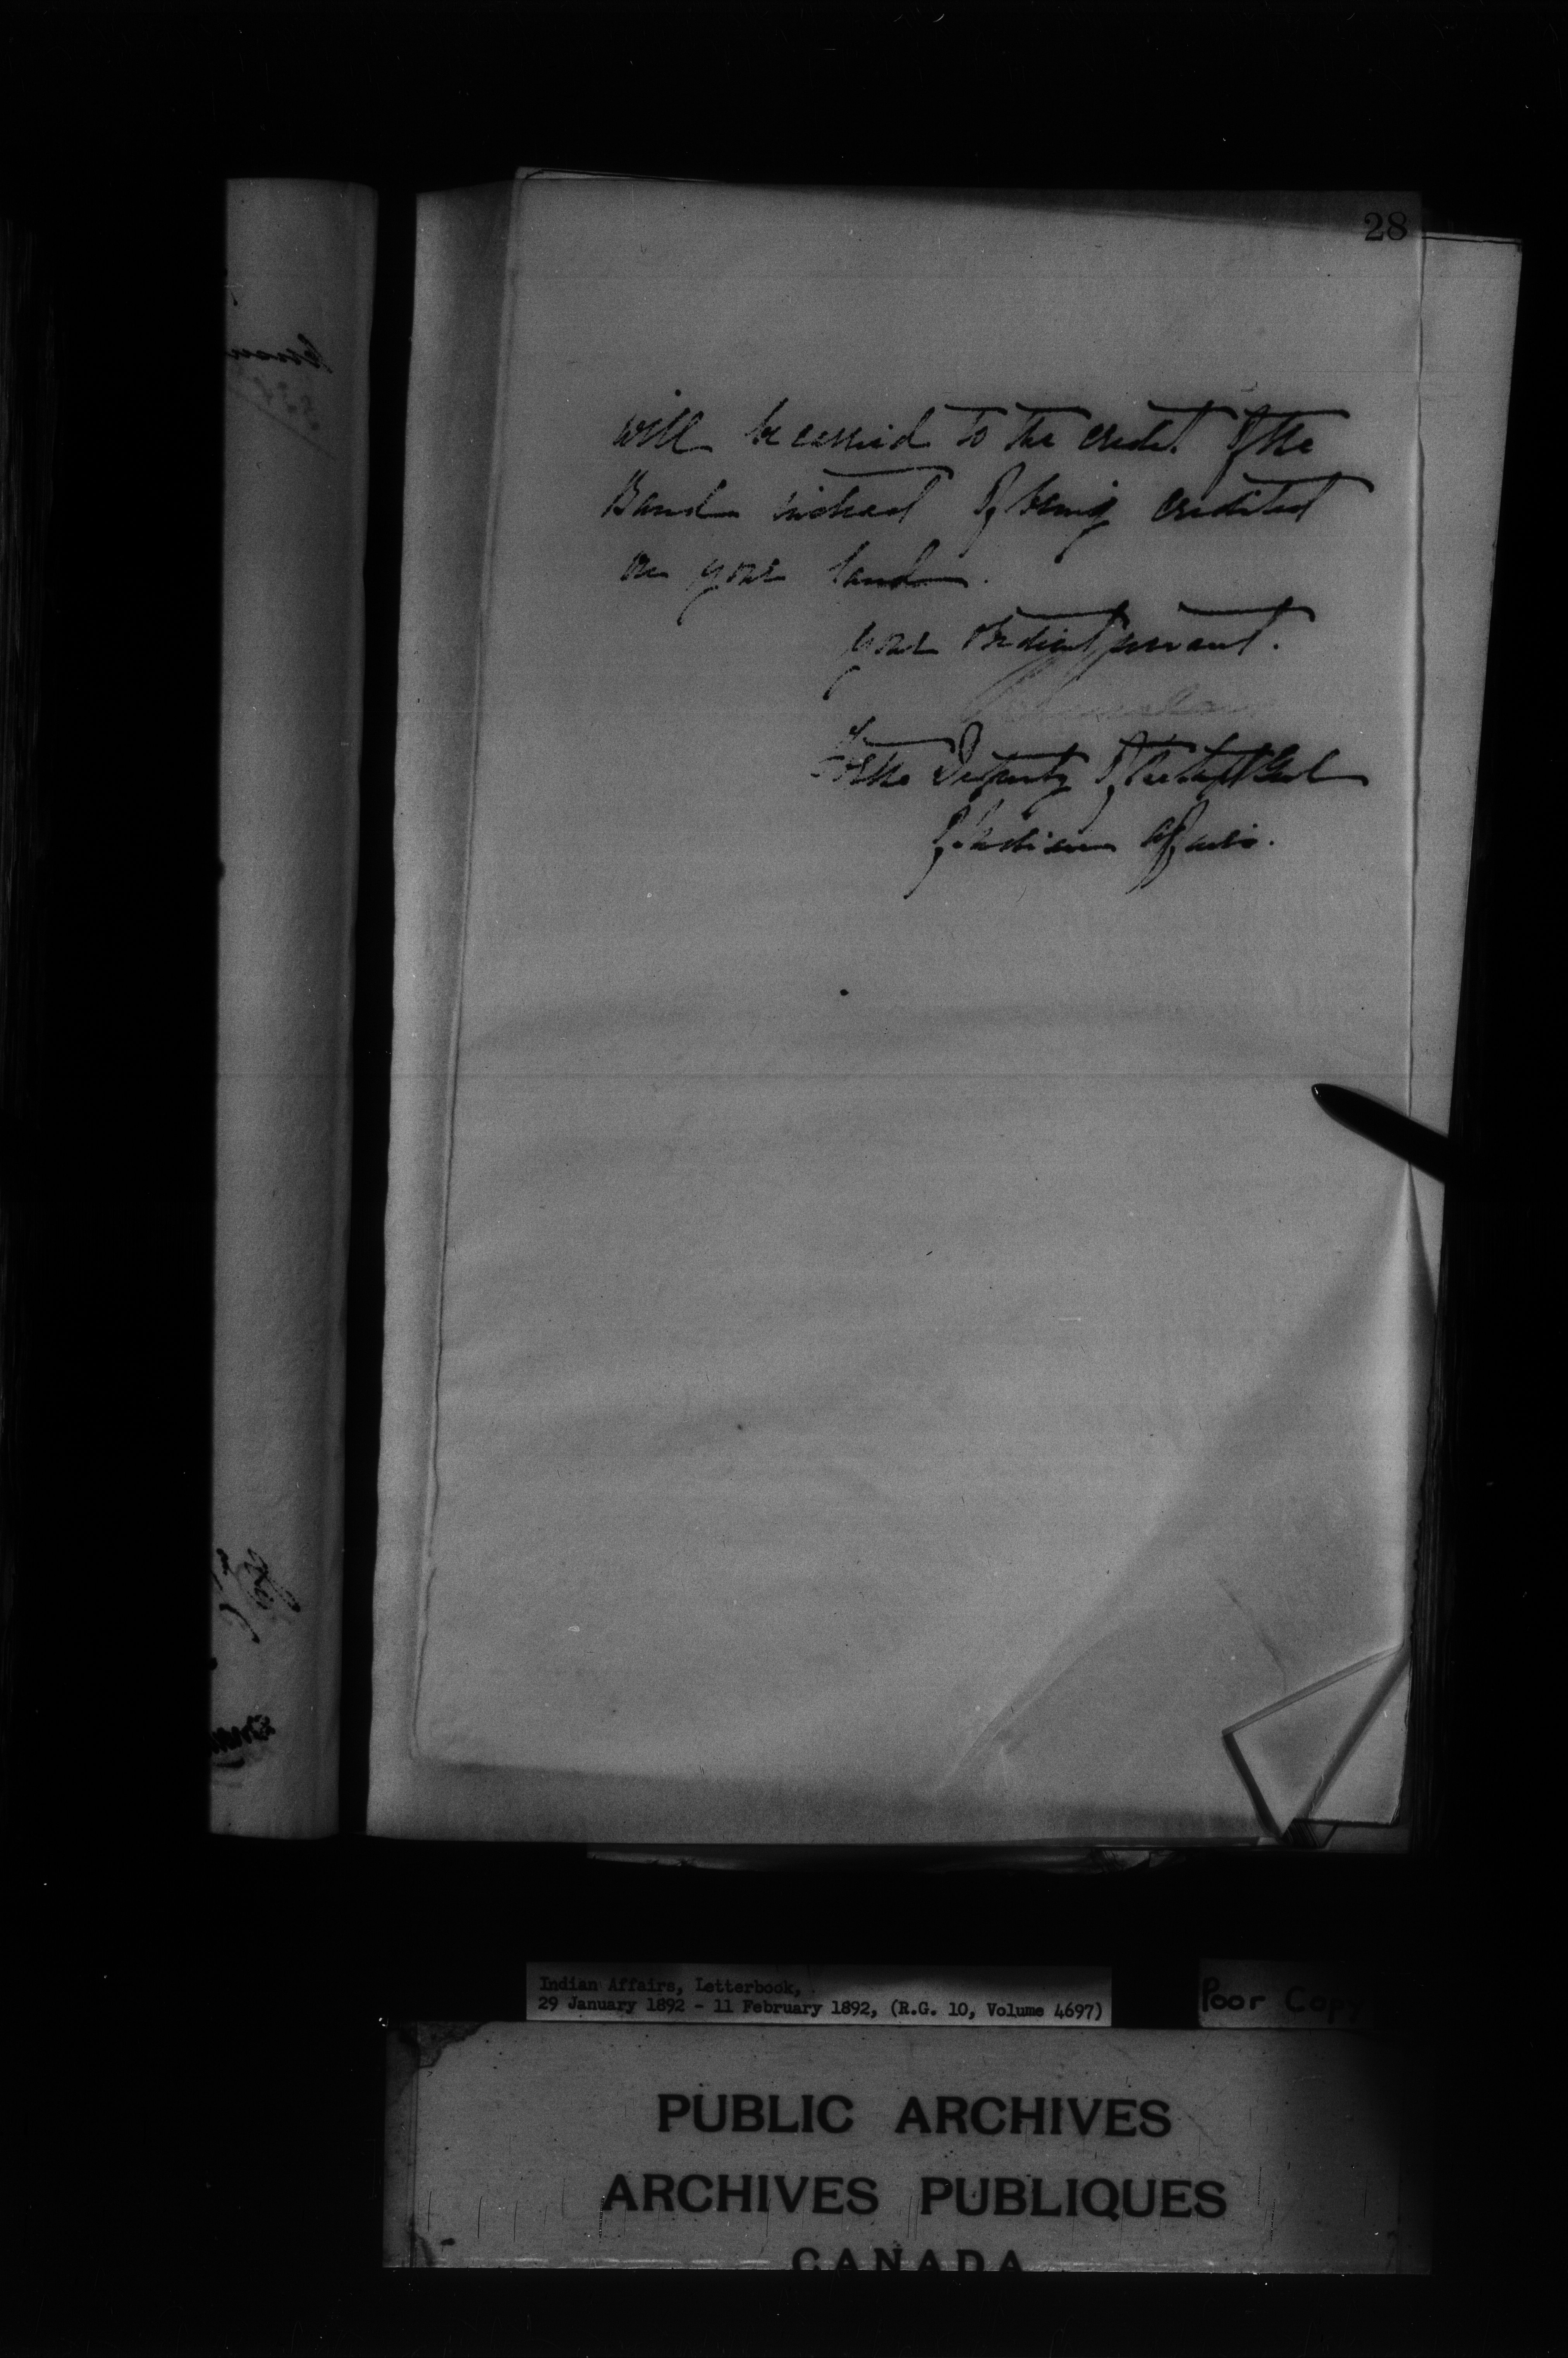 28
will be carried to the credit of the
Band instead of being credited
on your land.
your obedient servant.
For the Deputy of the Supt Genl
of Indian Affairs.
Indian Affairs, Letterbook,
29 January 1892 - 11 February 1892, (R.G. 10, Volume 4697)
Poor Copy
PUBLIC ARCHIVES
ARCHIVES PUBLIQUES
CANADA